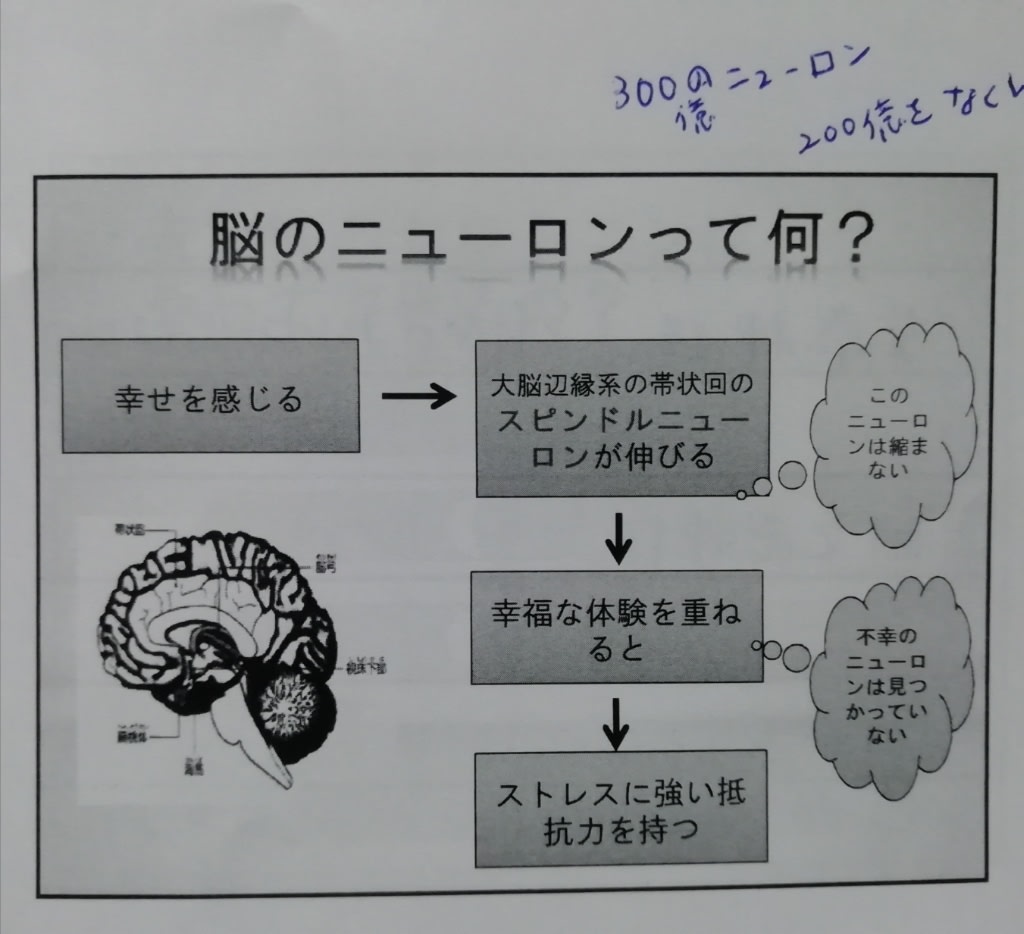 300の ニューロン
億
200億を なくし
脳のニューロンって何？
幸せを感じる
大脳辺縁系の帯状回の
スピンドルニュー
ロンが伸びる
この
ニューロ
ンは縮ま
ない
帯状回
幸福な体験を重ね
ると
不幸の
ニューロ
ンは見つ
かってい
ない
ストレスに強い抵
抗力を持つ